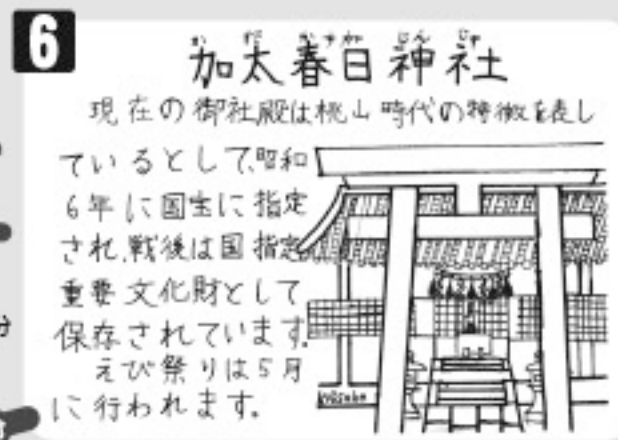 6
かだかすがじんじゃ
加太春日神社
現在の御社殿は桃山時代の特徴を表し
ているとして、昭和
6年に国宝に指定
され、戦後は国指定
重要文化財として
保存されています。
えび祭りは5月
に行われます。
分